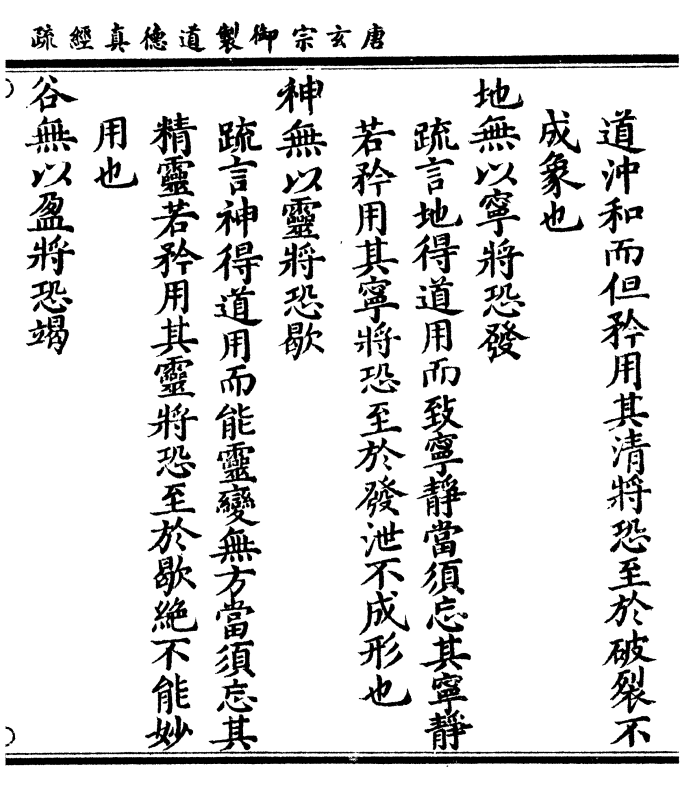 唐玄宗御製道德真經疏
道沖和而但矜用其清將恐至於破裂不
成象也
地無以寧將恐發
疏言地得道用而致寧靜當須忘其寧靜
若矜用其寧將恐至於發泄不成形也
神無以靈將恐歇
疏言神得道用而能靈變無方當須忘其
精靈若矜用其靈將恐至於歇絶不能妙
用也
谷無以盈將恐竭